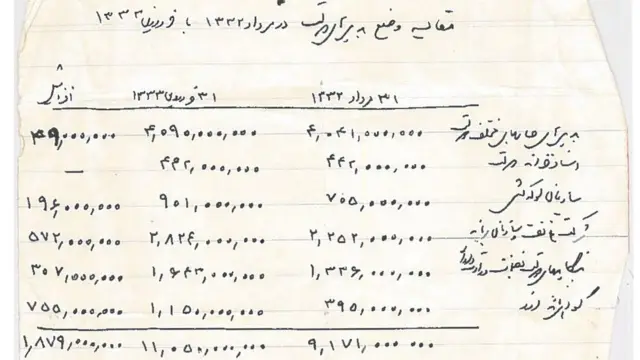 مقایسه وضع بدهی‌های دولت در مرداد ۱۳۳۲ با فروردین ۱۳۳۳
۳۱ مرداد ۱۳۳۲ ۳۱ فروردین ۱۳۳۳ افزایش
بدهی‌های حسابهای مختلف دولت ۴,۰۴۱,۰۰۰,۰۰۰ ۴,۰۹۰,۰۰۰,۰۰۰ ۴۹,۰۰۰,۰۰۰
اسناد خزانه دولت ۴۴۲,۰۰۰,۰۰۰ ۴۴۲,۰۰۰,۰۰۰ —
سازمان ۷۰۵,۰۰۰,۰۰۰ ۹۰۱,۰۰۰,۰۰۰ ۱۹۶,۰۰۰,۰۰۰
شرکت نفت و سازمان برنامه ۲,۲۵۲,۰۰۰,۰۰۰ ۲,۸۲۴,۰۰۰,۰۰۰ ۵۷۲,۰۰۰,۰۰۰
۱,۳۳۶,۰۰۰,۰۰۰ ۱,۶۴۳,۰۰۰,۰۰۰ ۳۰۷,۰۰۰,۰۰۰
۳۹۵,۰۰۰,۰۰۰ ۱,۱۵۰,۰۰۰,۰۰۰ ۷۵۵,۰۰۰,۰۰۰
۹,۱۷۱,۰۰۰,۰۰۰ ۱۱,۰۵۰,۰۰۰,۰۰۰ ۱,۸۷۹,۰۰۰,۰۰۰